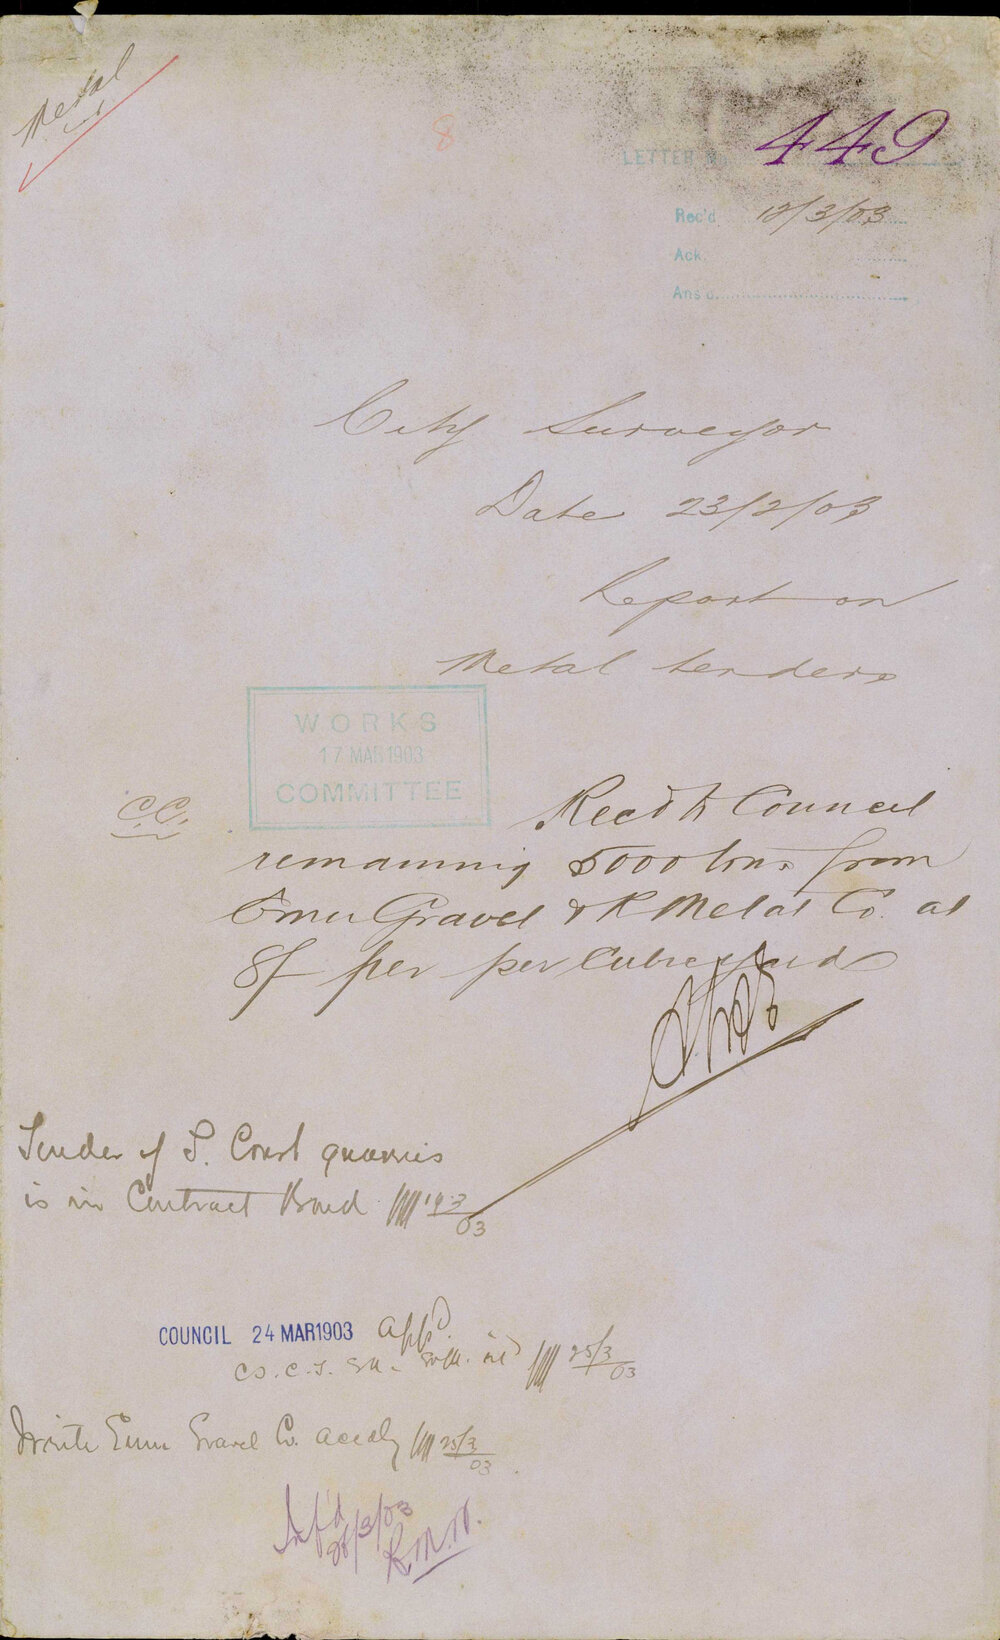 Metal
8
LETTER No 449
Rec'd 12/3/03
Ack.
Ans'd.
City Surveyor
Date 23/2/03
Report on
Metal tenders
WORKS
17 MAR 1903
COMMITTEE
C.C.
Recd to Council
remaining 5000 tons from
Emu Gravel & R Metal Co. at
8/- per per Cubic yard
Tender of S. Coast quarries
is in Contract Bond 19/3/03
COUNCIL 24 MAR 1903 Appd.
25/3/03
Write Emu Gravel Co. accdly 25/3/03
Inf'd
26/3/03
R.M.N.